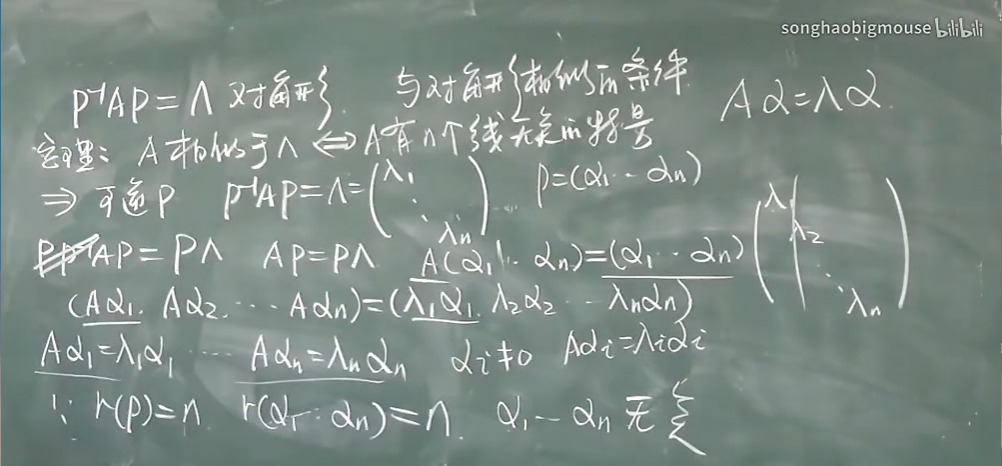 songhaobigmouse bilibili
P⁻¹AP=Λ 对角形 与对角形相似的条件 Aα=λα
定理: A相似于Λ ⇔ A有n个线无关的特量
⇒ 可逆P P⁻¹AP=Λ=(λ₁ ⋱ λₙ) P=(α₁…αₙ)
PP⁻¹AP=PΛ AP=PΛ A(α₁…αₙ)=(α₁…αₙ)(λ₁ λ₂ ⋱ λₙ)
(Aα₁ Aα₂ … Aαₙ)=(λ₁α₁ λ₂α₂ … λₙαₙ)
Aα₁=λ₁α₁ … Aαₙ=λₙαₙ αᵢ≠0 Aαᵢ=λᵢαᵢ
∵ r(P)=n r(α₁…αₙ)=n α₁…αₙ 无